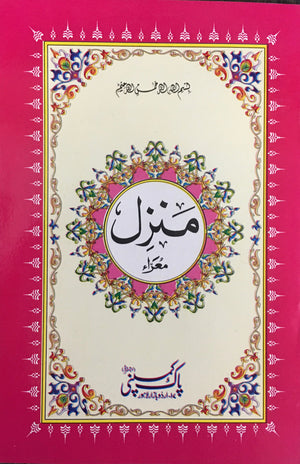 بسم اللہ الرحمن الرحیم
مَنزِل
معرّاء
پاک کمپنی